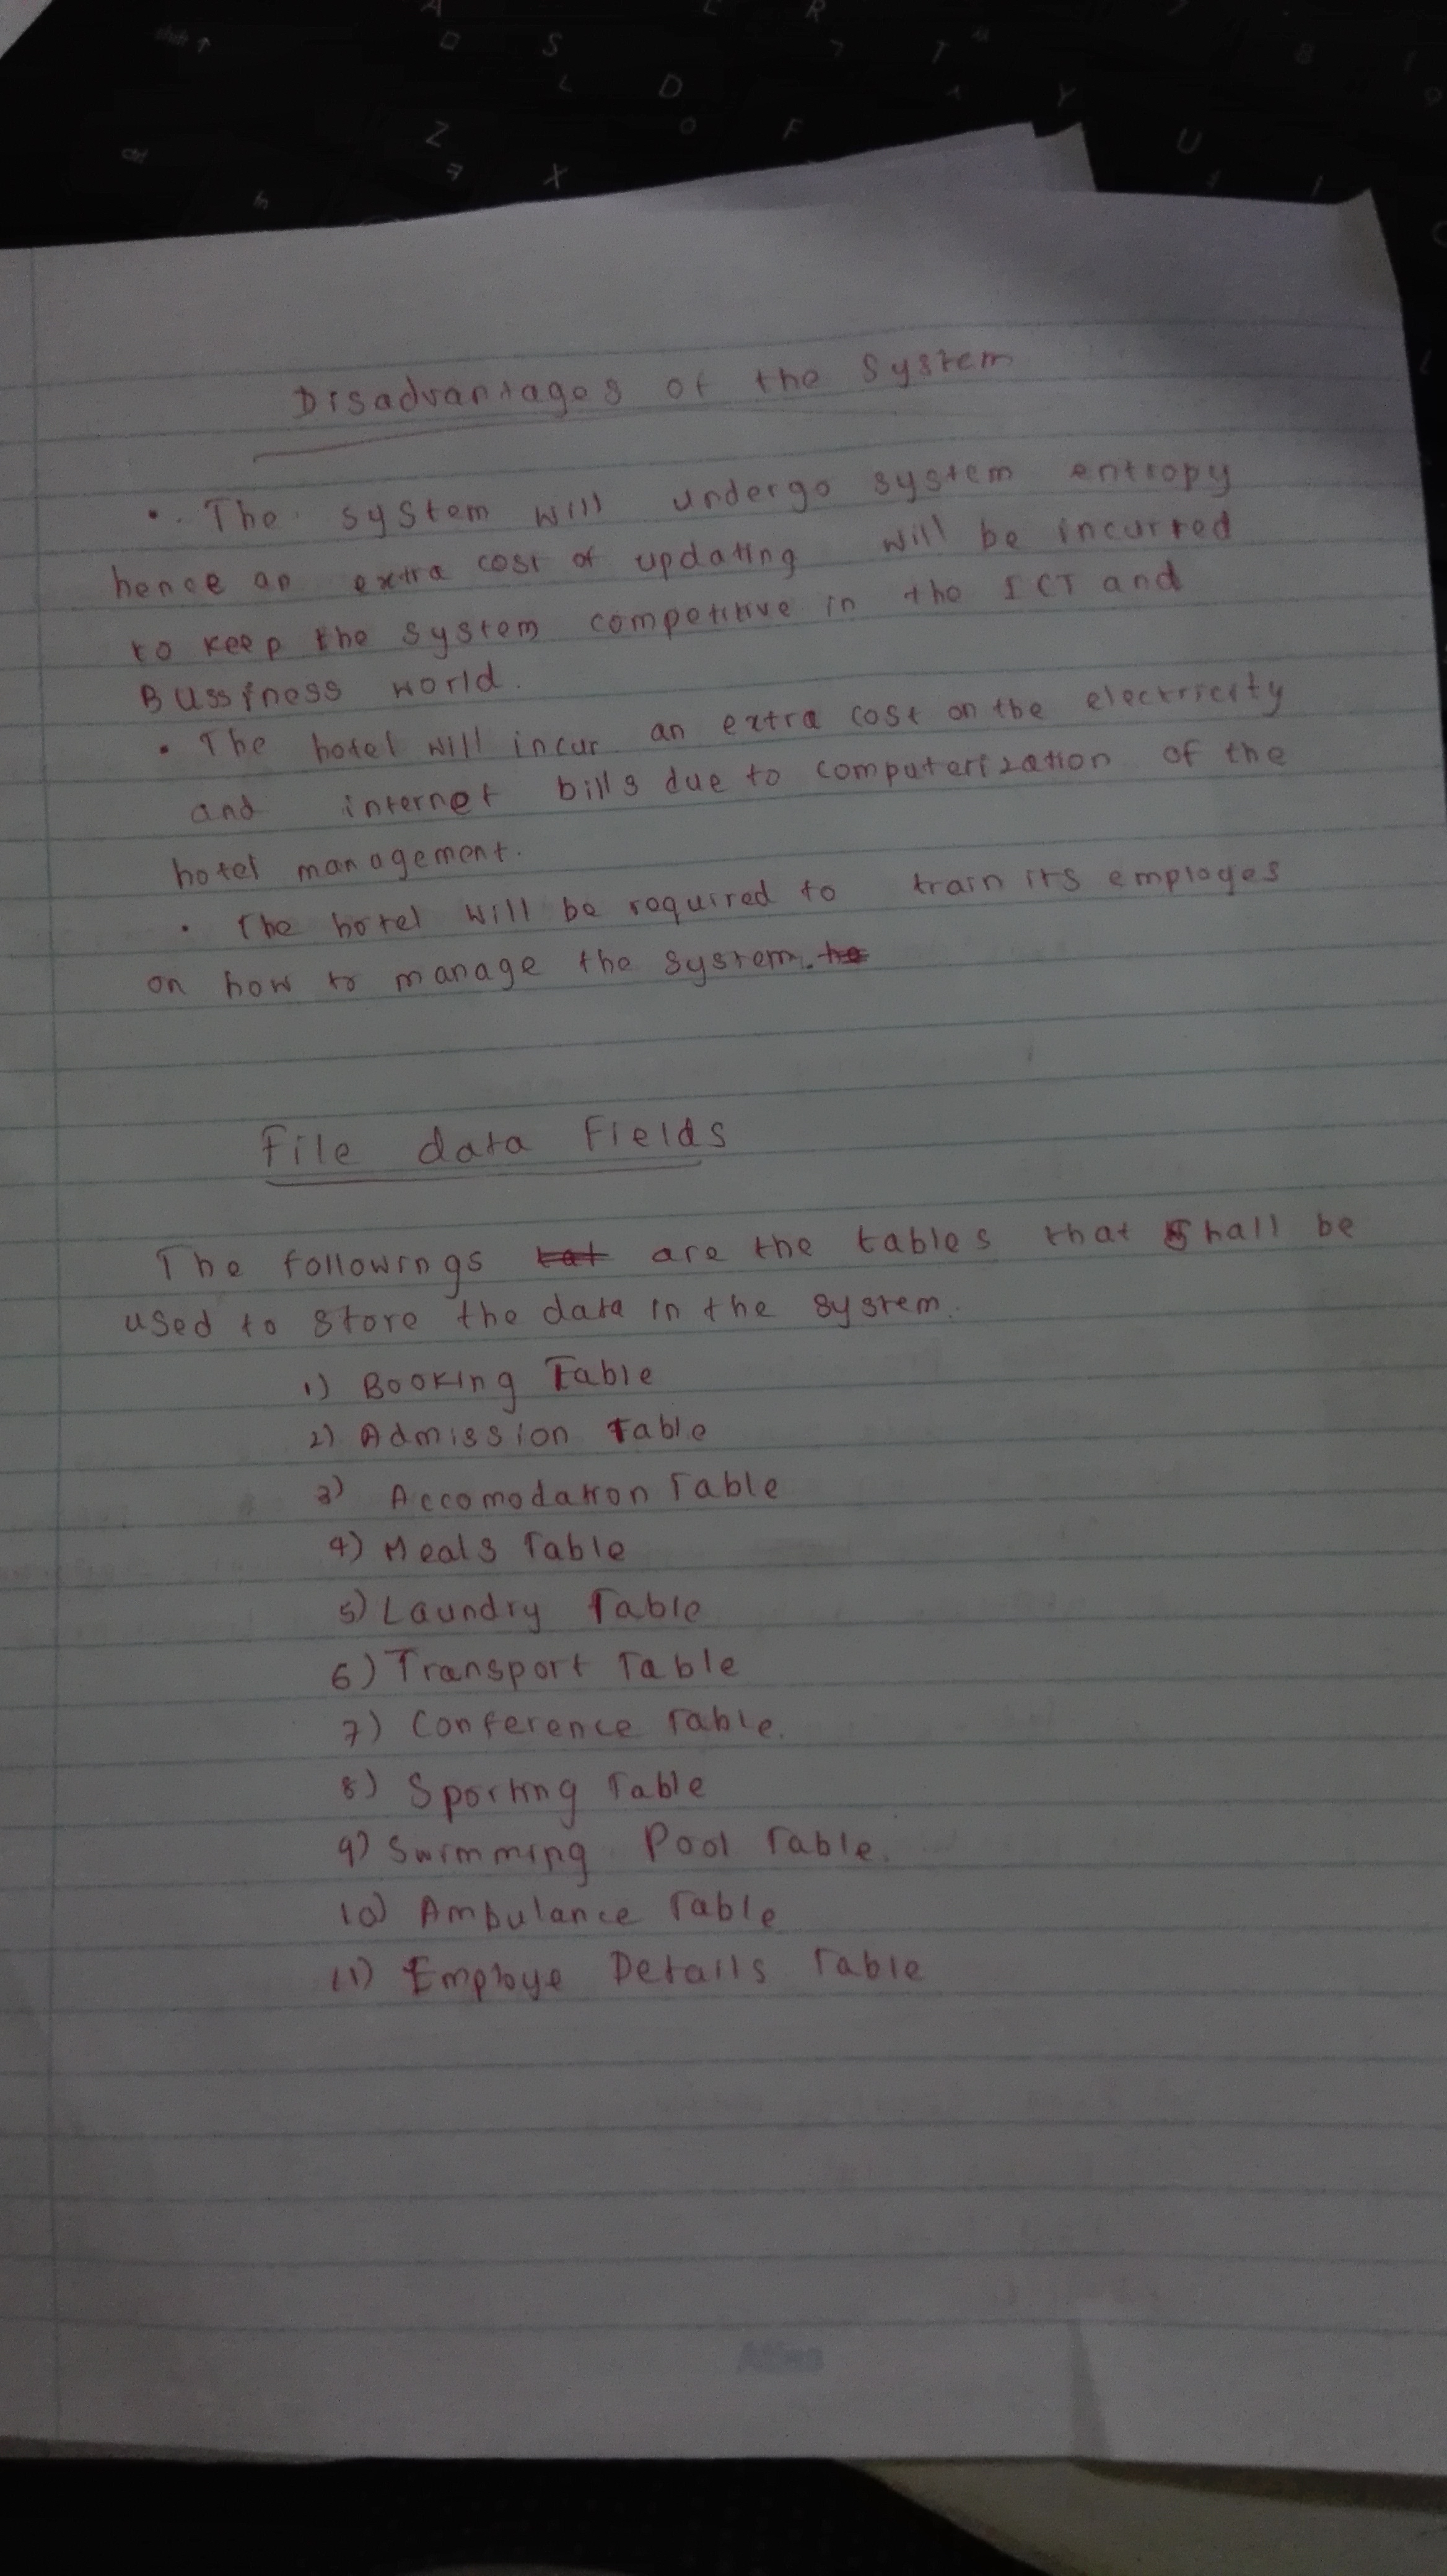 Disadvantages of the System
• The system will undergo system entropy
hence an extra cost of updating will be incurred
to keep the system competitive in the ICT and
Bussiness world.
• The hotel will incur an extra cost on the electricity
and internet bills due to computerization of the
hotel management.
• The hotel will be required to train its employes
on how to manage the system.
File data Fields
The followings are the tables that shall be
used to store the data in the system.
1) Booking Table
2) Admission Table
3) Accomodation Table
4) Meals Table
5) Laundry Table
6) Transport Table
7) Conference Table.
8) Sporting Table
9) Swimming Pool Table.
10) Ambulance Table
11) Employe Details Table